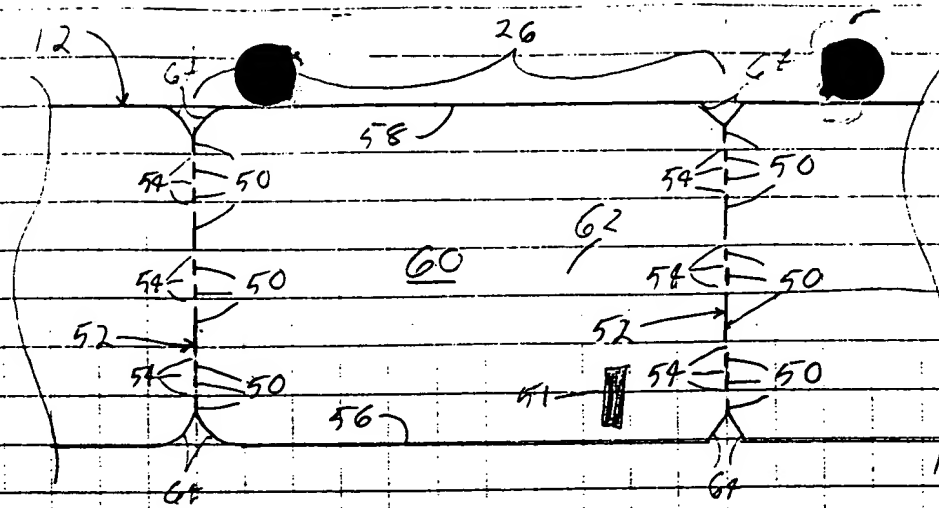 12 26
64 64
58
54 50 54 50
62
60
54 50 54 50
52 52
54 50 51 54 50
56
64 64